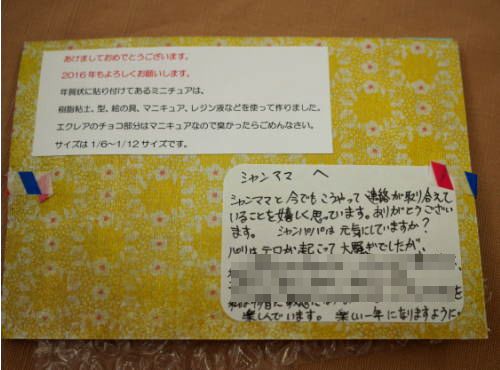 あけましておめでとうございます。
2016年もよろしくお願いします。
年賀状に貼り付けてあるミニチュアは、
樹脂粘土、型、絵の具、マニキュア、レジン液などを使って作りました。
エクレアのチョコ部分はマニキュアなので臭かったらごめんなさい。
サイズは1/6～1/12サイズです。
シャンママ へ
シャンママと今でもこうやって連絡が取り合えて
いることを嬉しく思っています。ありがとうござい
ます。 シャンパパは元気にしていますか？
パリはテロが起こって大騒ぎでしたが、
楽しんでいます。 楽しい一年になりますように。